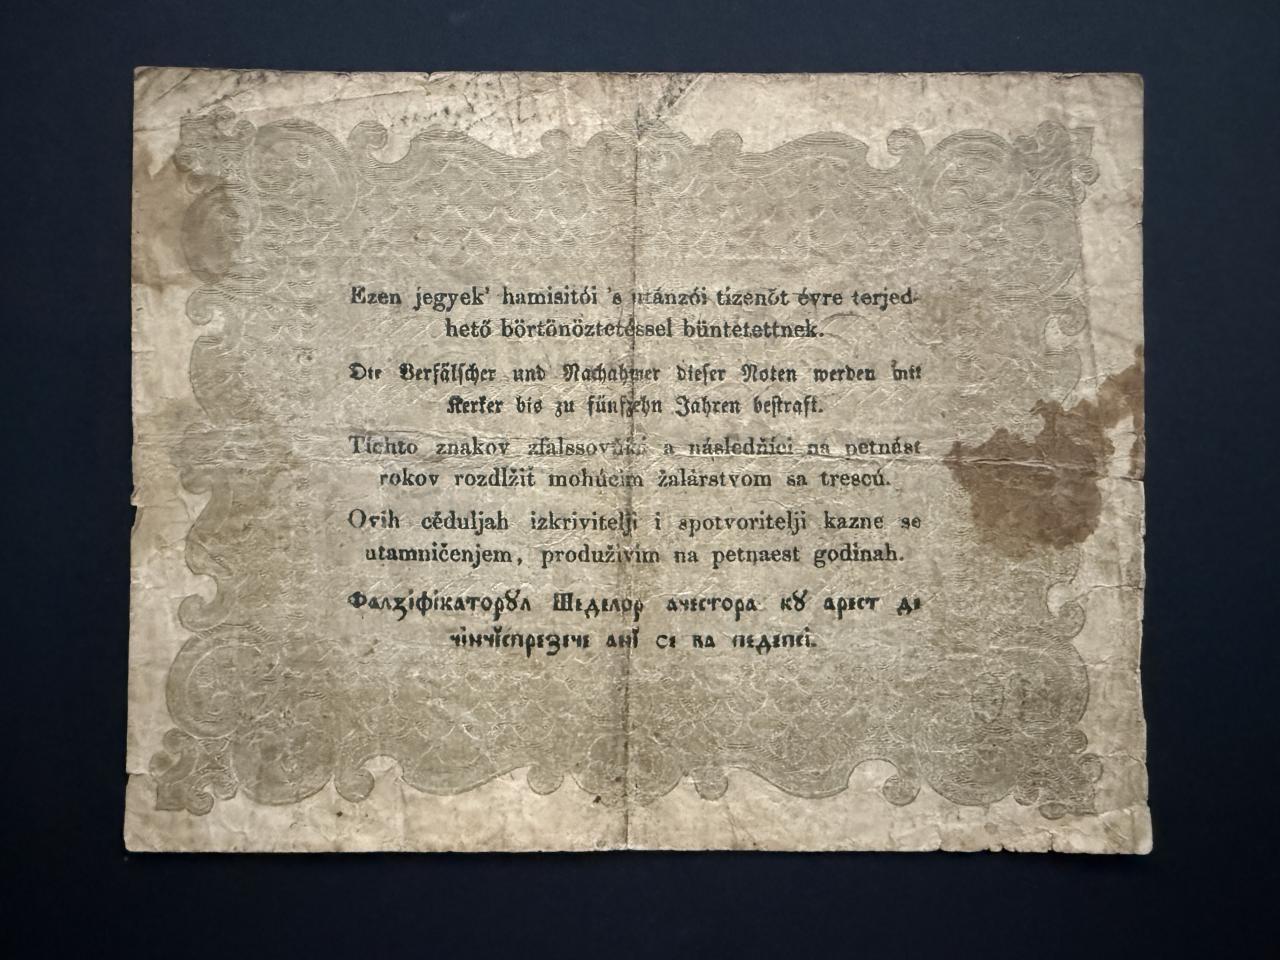 Ezen jegyek' hamisitói 's utánzói tizenöt évre terjed-
hető börtönöztetéssel büntetettnek.
Die Verfälscher und Nachahmer dieser Noten werden mit
Kerker bis zu fünfzehn Jahren bestraft.
Tíchto znakov zfalssovňíki a následňíci na petnást
rokov rozdlžiť mohúcim žalárstvom sa trescú.
Ovih céduljah izkrivitelji i spotvoritelji kazne se
utamničenjem, produživim na petnaest godinah.
Фалзіфікаторꙋл Шеделор ачестора кꙋ арест де
чінчĭспрезече анĭ се ва педепсі.